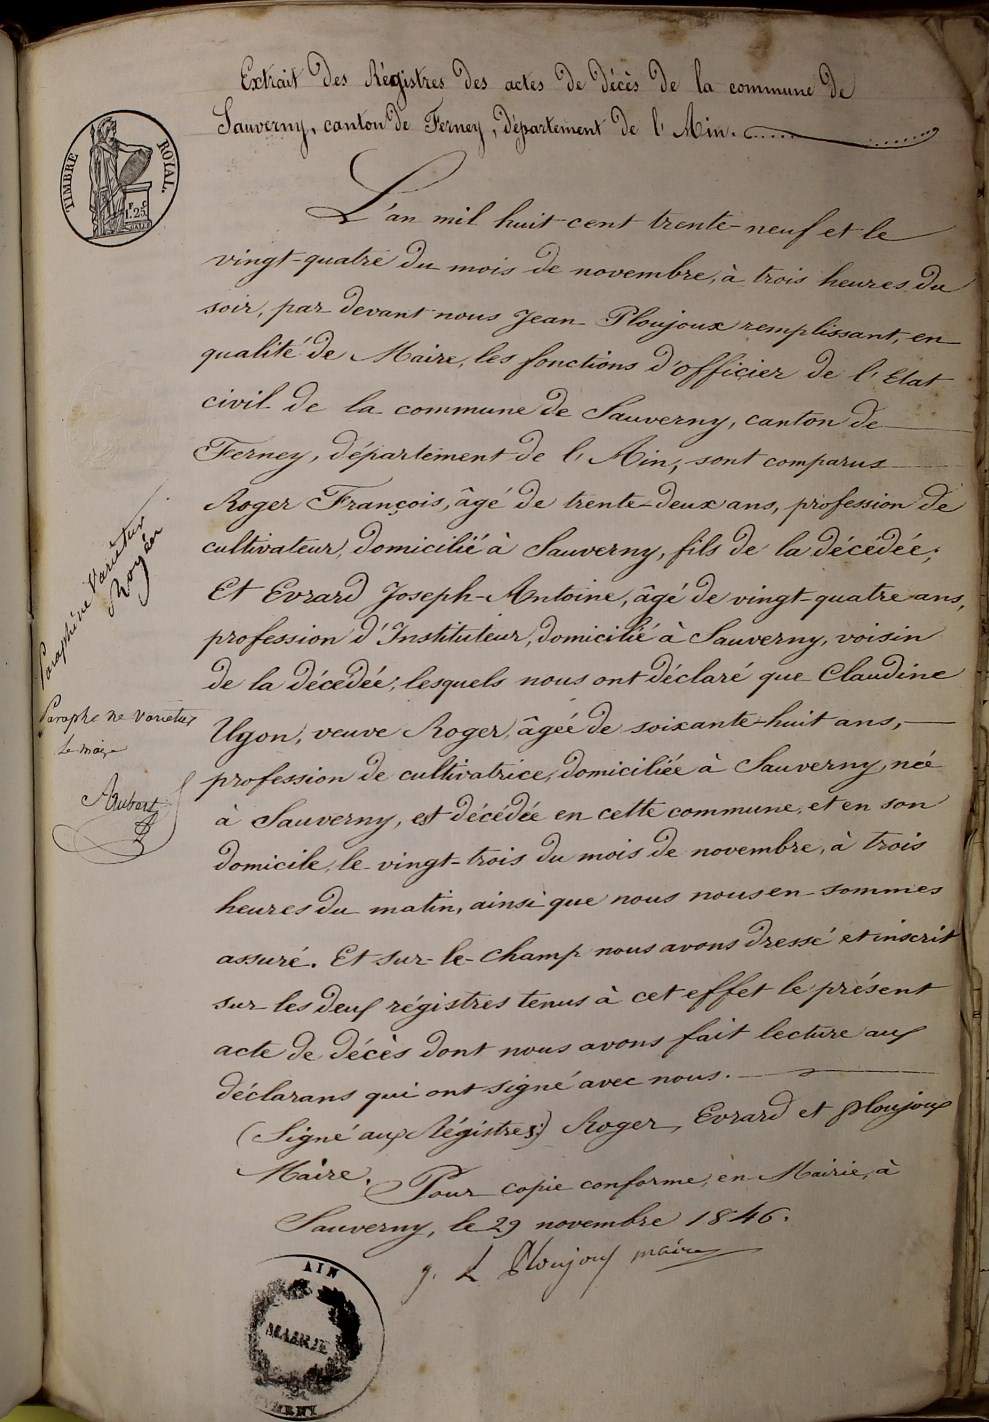 Extrait des Régistres des actes de décès de la commune de
Sauverny, canton de Ferney, département de l'Ain.
TIMBRE ROYAL.
F. C.
1.25
L'an mil huit cent trente-neuf et le
vingt-quatre du mois de novembre, à trois heures du
soir, par devant nous Jean Ploujoux remplissant, en
qualité de Maire, les fonctions d'officier de l'Etat
civil de la commune de Sauverny, canton de
Ferney, département de l'Ain, sont comparus
Roger François, âgé de trente-deux ans, profession de
cultivateur, domicilié à Sauverny, fils de la décédée;
Et Evrard Joseph-Antoine, âgé de vingt-quatre ans,
profession d'Instituteur, domicilié à Sauverny, voisin
de la décédée; lesquels nous ont déclaré que Claudine
Ugon, veuve Roger, âgée de soixante-huit ans,
profession de cultivatrice, domiciliée à Sauverny, née
à Sauverny, est décédée en cette commune, et en son
domicile, le vingt-trois du mois de novembre, à trois
heures du matin, ainsi que nous nous en sommes
assuré. Et sur-le-champ nous avons dressé et inscrit
sur les deux régistres tenus à cet effet le présent
acte de décès dont nous avons fait lecture aux
déclarans qui ont signé avec nous.
(Signé aux Régistres) Roger, Evrard et Ploujoux
Maire. Pour copie conforme, en Mairie, à
Sauverny, le 29 novembre 1846.
g. L Ploujoux maire
Paraphé ne Varietur
Royer
Paraphe ne varietur
Le maire
Aubert
AIN
MAIRIE